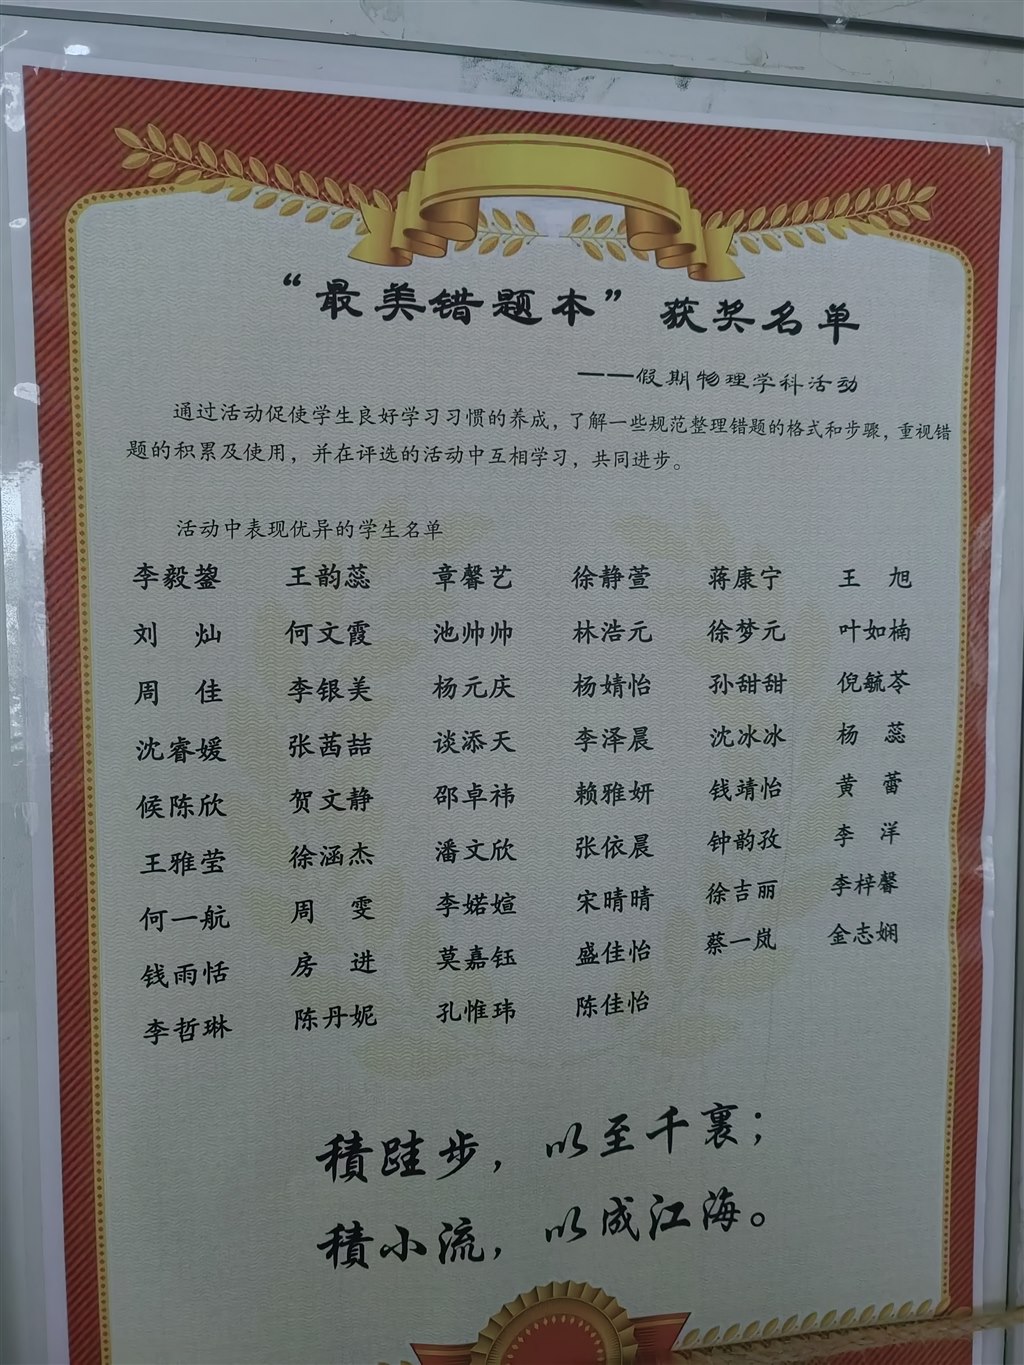 “最美错题本”获奖名单
——假期物理学科活动
通过活动促使学生良好学习习惯的养成，了解一些规范整理错题的格式和步骤，重视错
题的积累及使用，并在评选的活动中互相学习，共同进步。
活动中表现优异的学生名单
李毅鋆 王韵蕊 章馨艺 徐静萱 蒋康宁 王 旭
刘 灿 何文霞 池帅帅 林浩元 徐梦元 叶如楠
周 佳 李银美 杨元庆 杨婧怡 孙甜甜 倪毓苓
沈睿媛 张茜喆 谈添天 李泽晨 沈冰冰 杨 蕊
候陈欣 贺文静 邵卓祎 赖雅妍 钱靖怡 黄 蕾
王雅莹 徐涵杰 潘文欣 张依晨 钟韵孜 李 洋
何一航 周 雯 李婼媗 宋晴晴 徐吉丽 李梓馨
钱雨恬 房 进 莫嘉钰 盛佳怡 蔡一岚 金志娴
李哲琳 陈丹妮 孔惟玮 陈佳怡
積跬步，以至千裏；
積小流，以成江海。